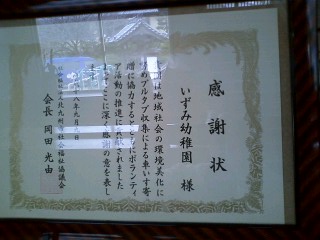 感謝状
いずみ幼稚園 様
は地域社会の環境美化に
めプルタブ収集による車いす寄
贈に協力するとともにボランティ
ア活動の推進に貢献されました
ここに深く感謝の意を表し
八年九月
北九州市社会福祉協議会
会長 岡田光由